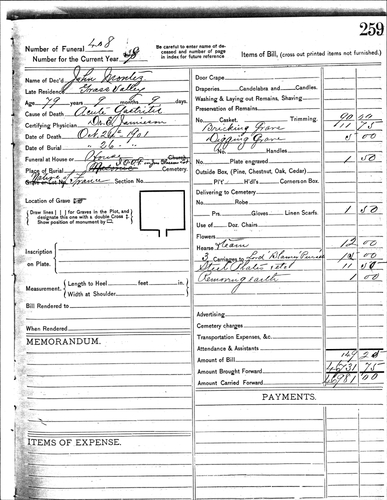 259
Number of Funeral 408
Number for the Current Year
Be carefully to enter name of deceased and number of page in index for future reference
Items of Bill, (cross out printed items not furnished.)
Name of Dec'd. John
Late Residence Grass Valley
Age 79 years 9 months 9 days.
Cause of Death Acute Gastritis
Certifying Physician Dr. C. Jamieson
Date of Death Oct 26th 1901
Date of Burial " 26 "
Funeral at House or House Church
Place of Burial Masonic I.O.O.F.
France Section No.
Location of Grave
Draw lines [ ] for Graves in the Plot, and designate this one with a double Cross
Show position of monument by
Inscription on Plate.
Measurement. (Length to Heel feet in.)
(Width at Shoulder)
Bill Rendered to
When Rendered
MEMORANDUM.
ITEMS OF EXPENSE.
Door Crape
Draperies Candelabra and Candles.
Washing & Laying out Remains, Shaving
Preservation of Remains
No. Casket. Trimming. 90 00
Bricking Grave 11 75
Digging Grave 5 00
No. Handles
Plate engraved 1 50
Outside Box, (Pine, Chestnut, Oak, Cedar)
P'l'Y H'd'l's Corners on Box.
Delivering to Cemetery
No. Robe
Prs. Gloves Linen Scarfs. 1 50
Use of Doz. Chair
Flowers
Hearse Team 12 00
3 Carriages to
11 50
Removing earth 1 00
Advertising
Cemetery charges
Transportation Expenses, &c.
Attendance & Assistants
Amount of Bill 149 25
Amount Brought Forward 46831 75
Amount Carried Forward 46981 00
PAYMENTS.